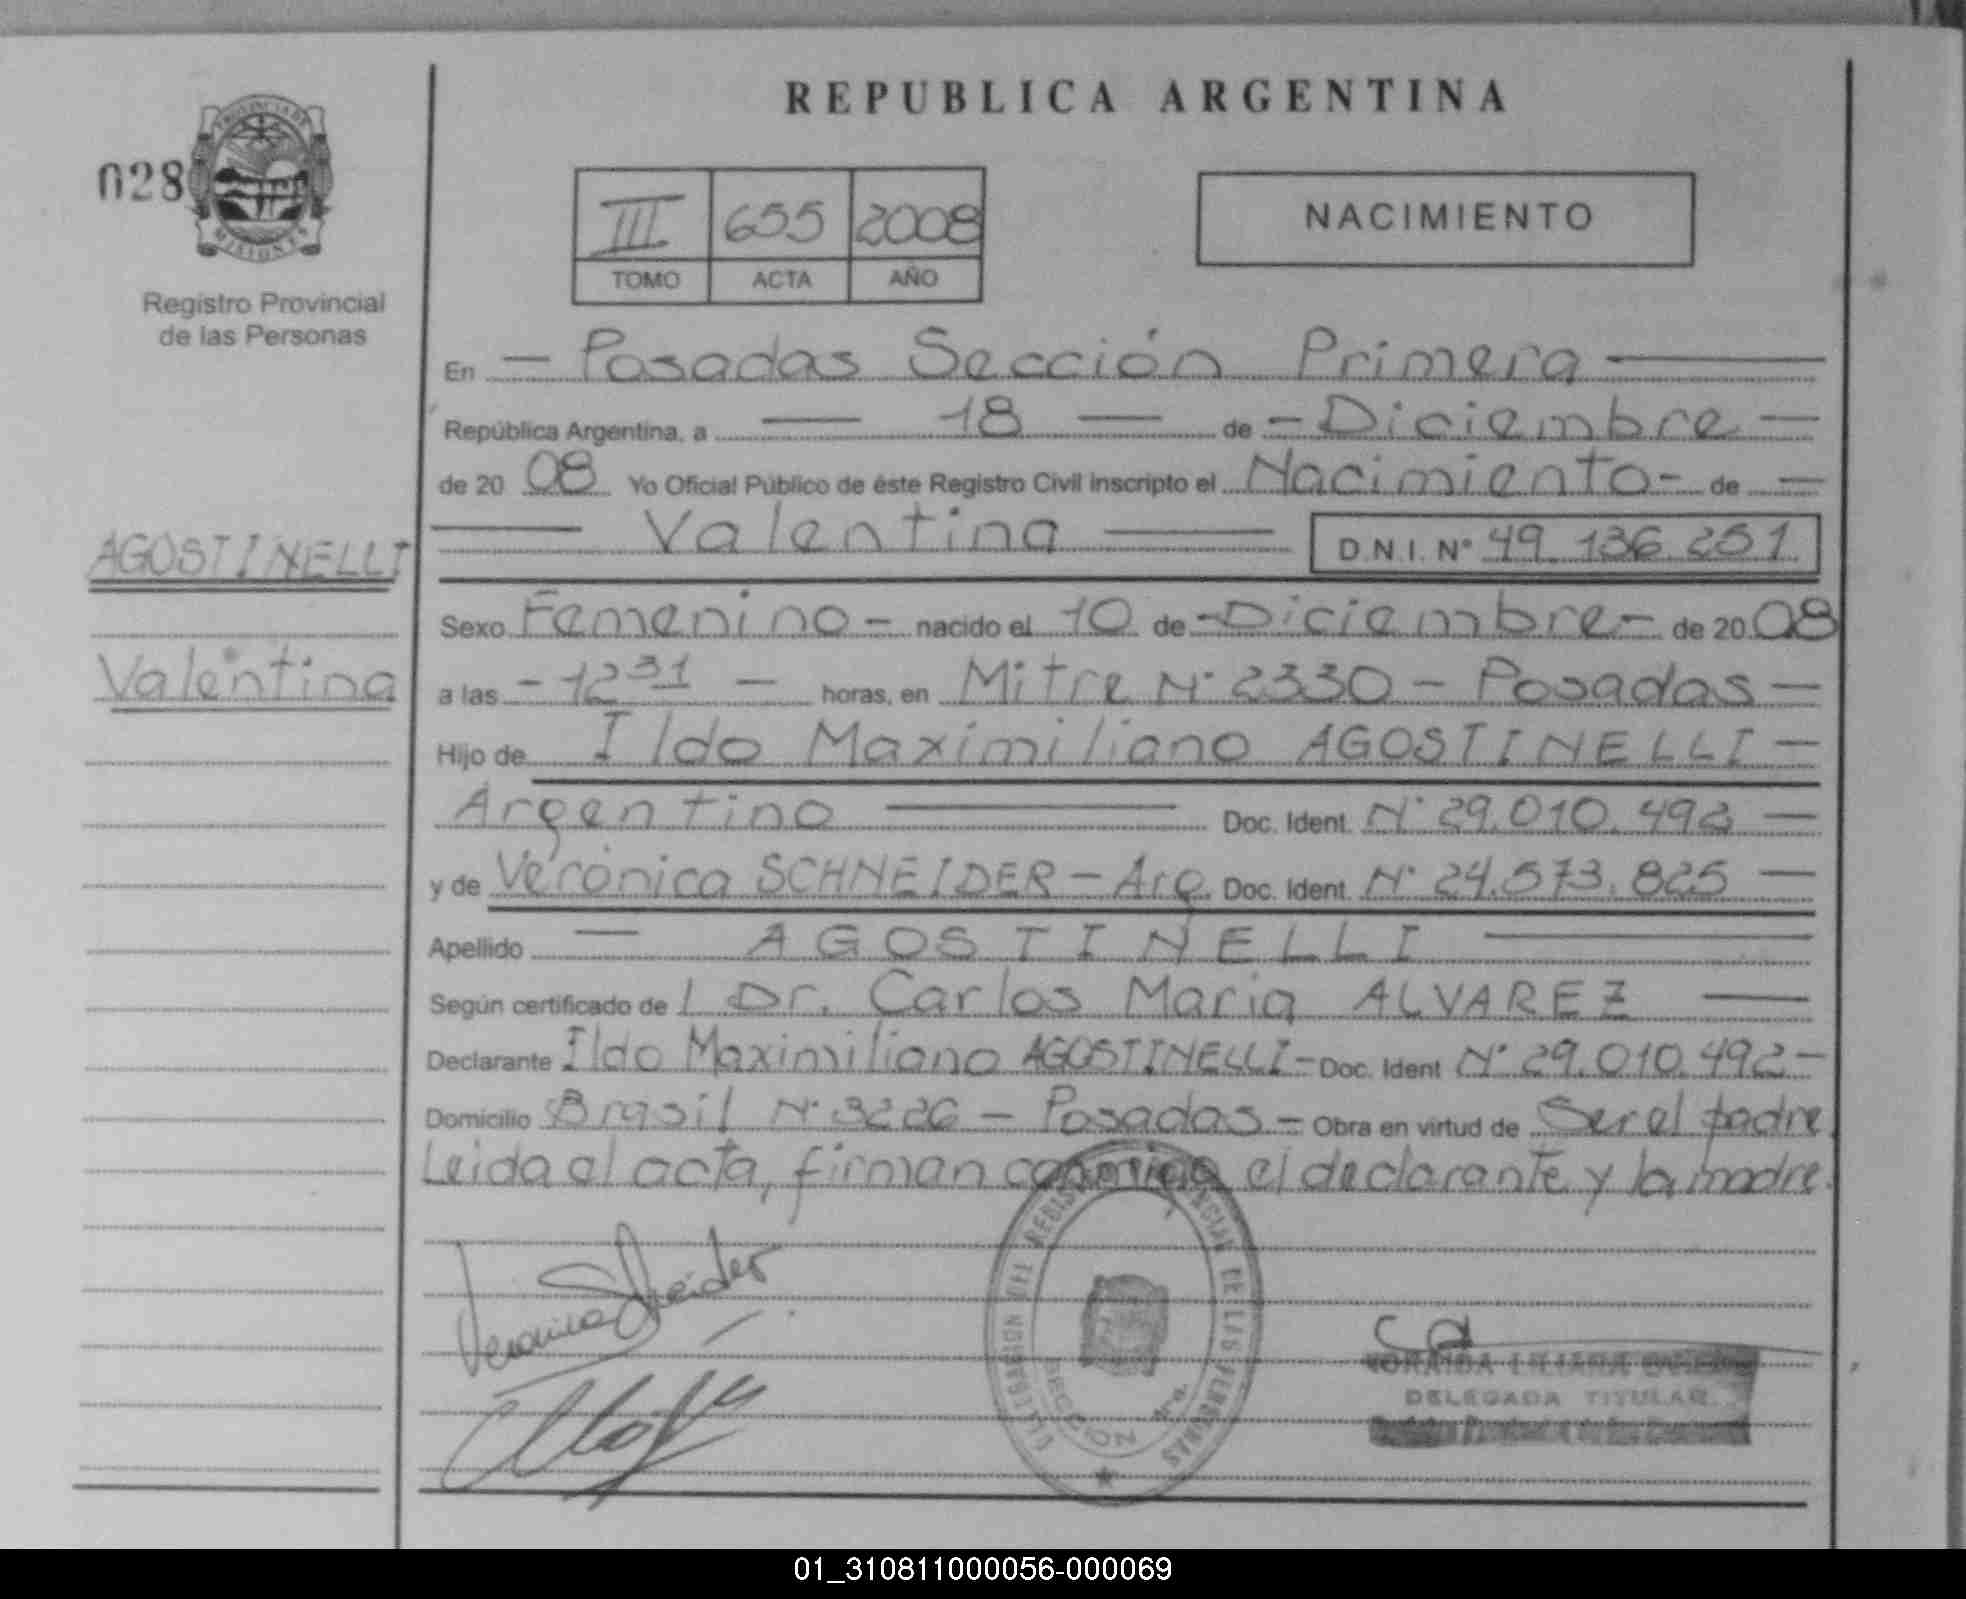 REPUBLICA ARGENTINA
028
PROVINCIA DE
MISIONES
Registro Provincial
de las Personas
III 655 2008
TOMO ACTA AÑO
NACIMIENTO
En — Posadas Sección Primera —
República Argentina, a — 18 — de - Diciembre —
de 20 08 Yo Oficial Público de éste Registro Civil inscripto el Nacimiento - de —
— Valentina — D.N.I. N° 49.136.251
AGOSTINELLI
Valentina
Sexo Femenino - nacido el 10 de - Diciembre - de 20 08
a las - 12 31 — horas, en Mitre N° 2330 - Posadas —
Hijo de Ildo Maximiliano AGOSTINELLI —
Argentino — Doc. Ident. N° 29.010.492 —
y de Verónica SCHNEIDER - Arg. Doc. Ident. N° 24.573.825 —
Apellido — AGOSTINELLI —
Según certificado de l Dr. Carlos Maria ALVAREZ —
Declarante Ildo Maximiliano AGOSTINELLI - Doc. Ident N° 29.010.492 -
Domicilio Brasil N° 3226 - Posadas - Obra en virtud de Ser el padre.
Leida el acta, firman conmigo el declarante y la madre.
Veronica Schneider
DELEGACION DEL REGISTRO PROVINCIAL DE LAS PERSONAS
SECCION 1ra.
LILIANA
DELEGADA TITULAR
01_310811000056-000069